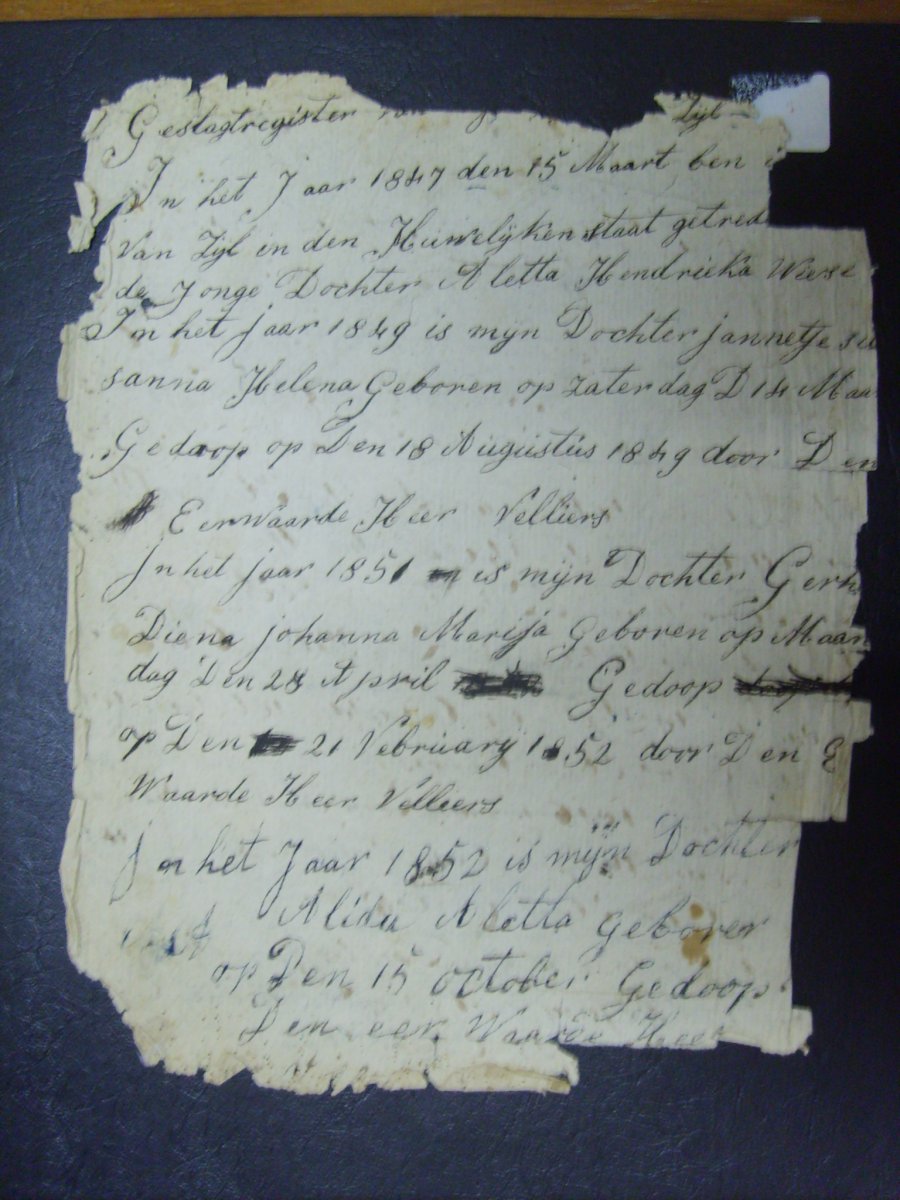 Geslagtregister van Zijl
In het Jaar 1847 den 15 Maart ben
Van Zijl in den Huwelijken staat getred
de Jonge Dochter Aletta Hendrieka Wiese
In het jaar 1849 is mijn Dochter jannetje su
sanna Helena Geboren op zaterdag D 14 Maa
Gedoop op Den 18 Augustus 1849 door Den
Eerwaarde Heer Velliers
Jn het jaar 1851 is mijn Dochter Gerh
Diena johanna Marija Geboren op Maan
dag Den 28 April Gedoop
op Den 21 Vebruarij 1852 door Den E
Waarde Heer Velliers
Jn het Jaar 1852 is mijn Dochter
Alida Aletta geboren
op Den 15 october Gedoop
Den eer Waarde Heer